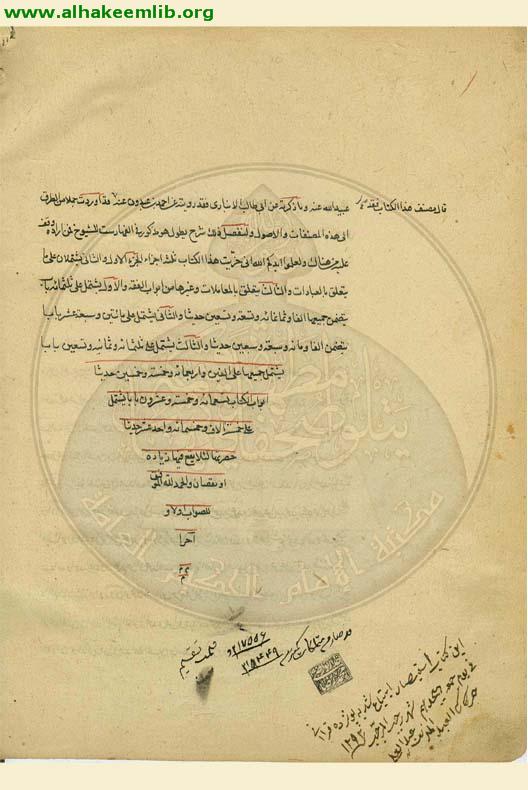 www.alhakeemlib.org
قال مصنف هذا الكتاب عبيدالله عنه وما ذكرته عن ابي طالب الانبارى فقد رويته عن احمد بن عبدون عنه فقد اوردت جملا من الطرق
الى هذه المصنفات والاصول ولتفصيل ذلك شرح يطول هو مذكور في الفهارست للشيوخ فمن اراده وقف
عليه من هناك واعلموا ايدكم الله انى جزيت هذا الكتاب ثلثة اجزاء الجزء الاول والثانى يشتملان على ما
يتعلق بالعبادات والثالث يتعلق بالمعاملات وغيرها من ابواب الفقه والاول يشتمل على ثلثمائة باب
يتضمن جميعها الفا وثمانمائة وتسعة وتسعين حديثا والثانى يشتمل على مائتين وسبعة عشر بابا
يتضمن الفا ومائة وسبعة وسبعين حديثا والثالث يشتمل على ثلثمائة وثمانية وتسعين بابا
يشتمل جميعها على الفين واربعمائة وخمسة وخمسين حديثا
ابواب الكتاب تسعمائة وخمسة وعشرون بابا يشتمل
على خمسة الاف وخمسمائة واحد عشر حديثا
حصرتها لئلا يقع فيها زيادة
او نقصان والحمد لله الموفق
للصواب اولا و
اخرا
م م
م
اين كتاب استبصار